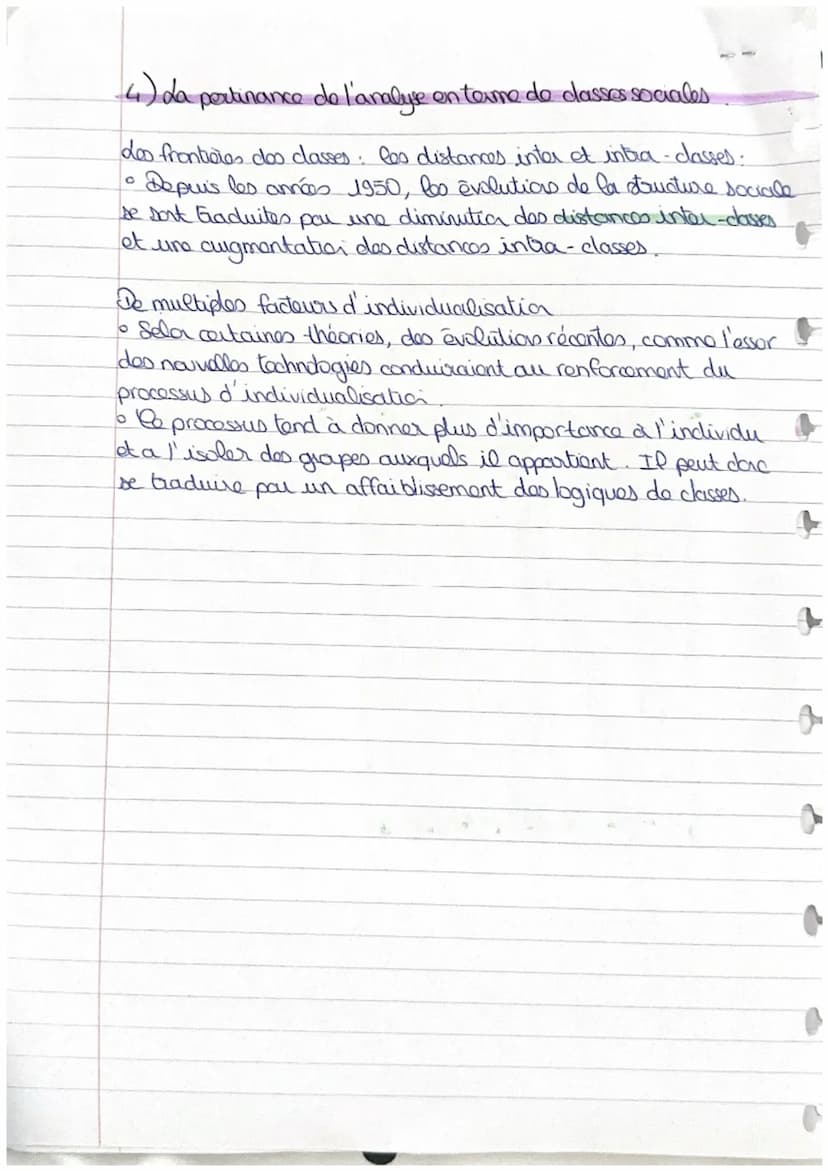 4) La pertinance de l'analyse en terme de classes sociales.
des frontières des classes : les distances inter et intra-classes :
° Depuis les années 1950, les évolutions de la structure sociale
se sont traduites par une diminution des distances inter-classes
et une augmentation des distances intra-classes.
De multiples facteurs d'individualisation
° Selon certaines théories, des évolutions récentes, comme l'essor
des nouvelles technologies conduiraient au renforcement du
processus d'individualisation.
° Ce processus tend à donner plus d'importance à l'individu
et a l'isoler des groupes auxquels il appartient. Il peut donc
se traduire par un affaiblissement des logiques de classes.